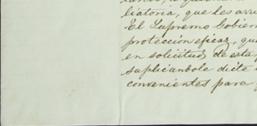 liatoria, que les arre
El Supremo Gobier
proteccion eficaz, que
en solicitud de esta
suplicandole dicte
convenientes para